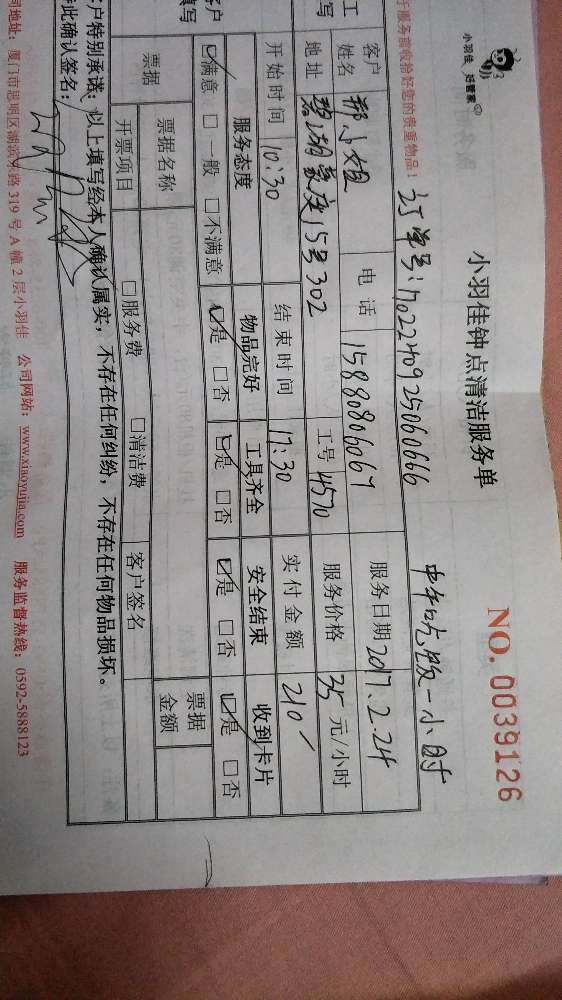 小羽佳 家管家
小羽佳钟点清洁服务单
NO. 0039126
订单号:170224092506066
中午吃饭一小时
于服务前收拾好您的贵重物品!
客户姓名 郑小姐 电话 15880806067 服务日期 2017.2.24
地址 碧湖豪庭15号302 工号 4570 服务价格 35 元/小时
开始时间 10:30 结束时间 17:30 实付金额 210
服务态度 物品完好 工具齐全 安全结束 收到卡片
☑满意 □一般 □不满意 ☑是 □否 ☑是 □否 ☑是 □否 ☑是 □否
票据 票据名称 票据金额
开票项目 □服务费 □清洁费 客户签名
户特别承诺:以上填写经本人确认属实,不存在任何纠纷,不存在任何物品损坏。
此确认签名:
司地址:厦门市思明区湖滨东路 319 号 A 幢 2 层小羽佳 公司网站:www.xiaoyujia.com 服务监督热线:0592-5888123